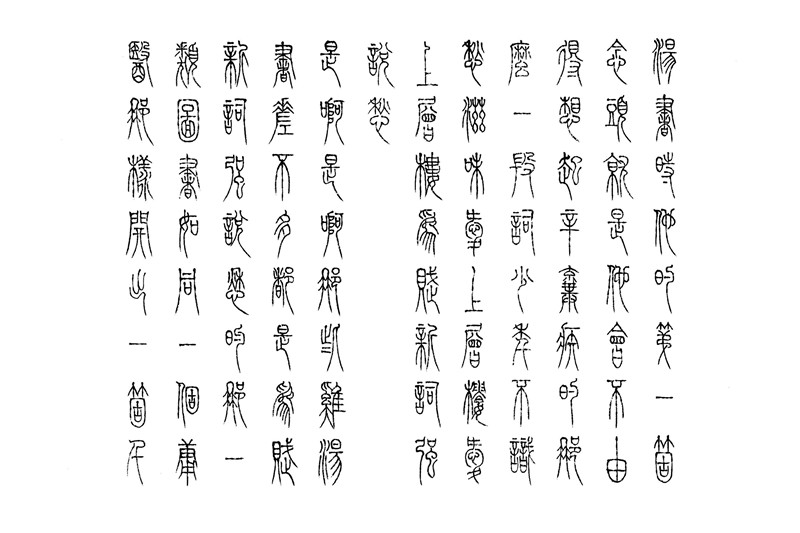 湯書時他的第一箇
念頭就是他會不由
得想起辛棄疾的那
麼一段詞少年不識
愁滋味愛上層樓愛
上層樓爲賦新詞強
說愁
是啊是啊那些雞湯
書差不多都是爲賦
新詞強說愁的那一
類圖書如同一個庸
醫那樣開出一箇千